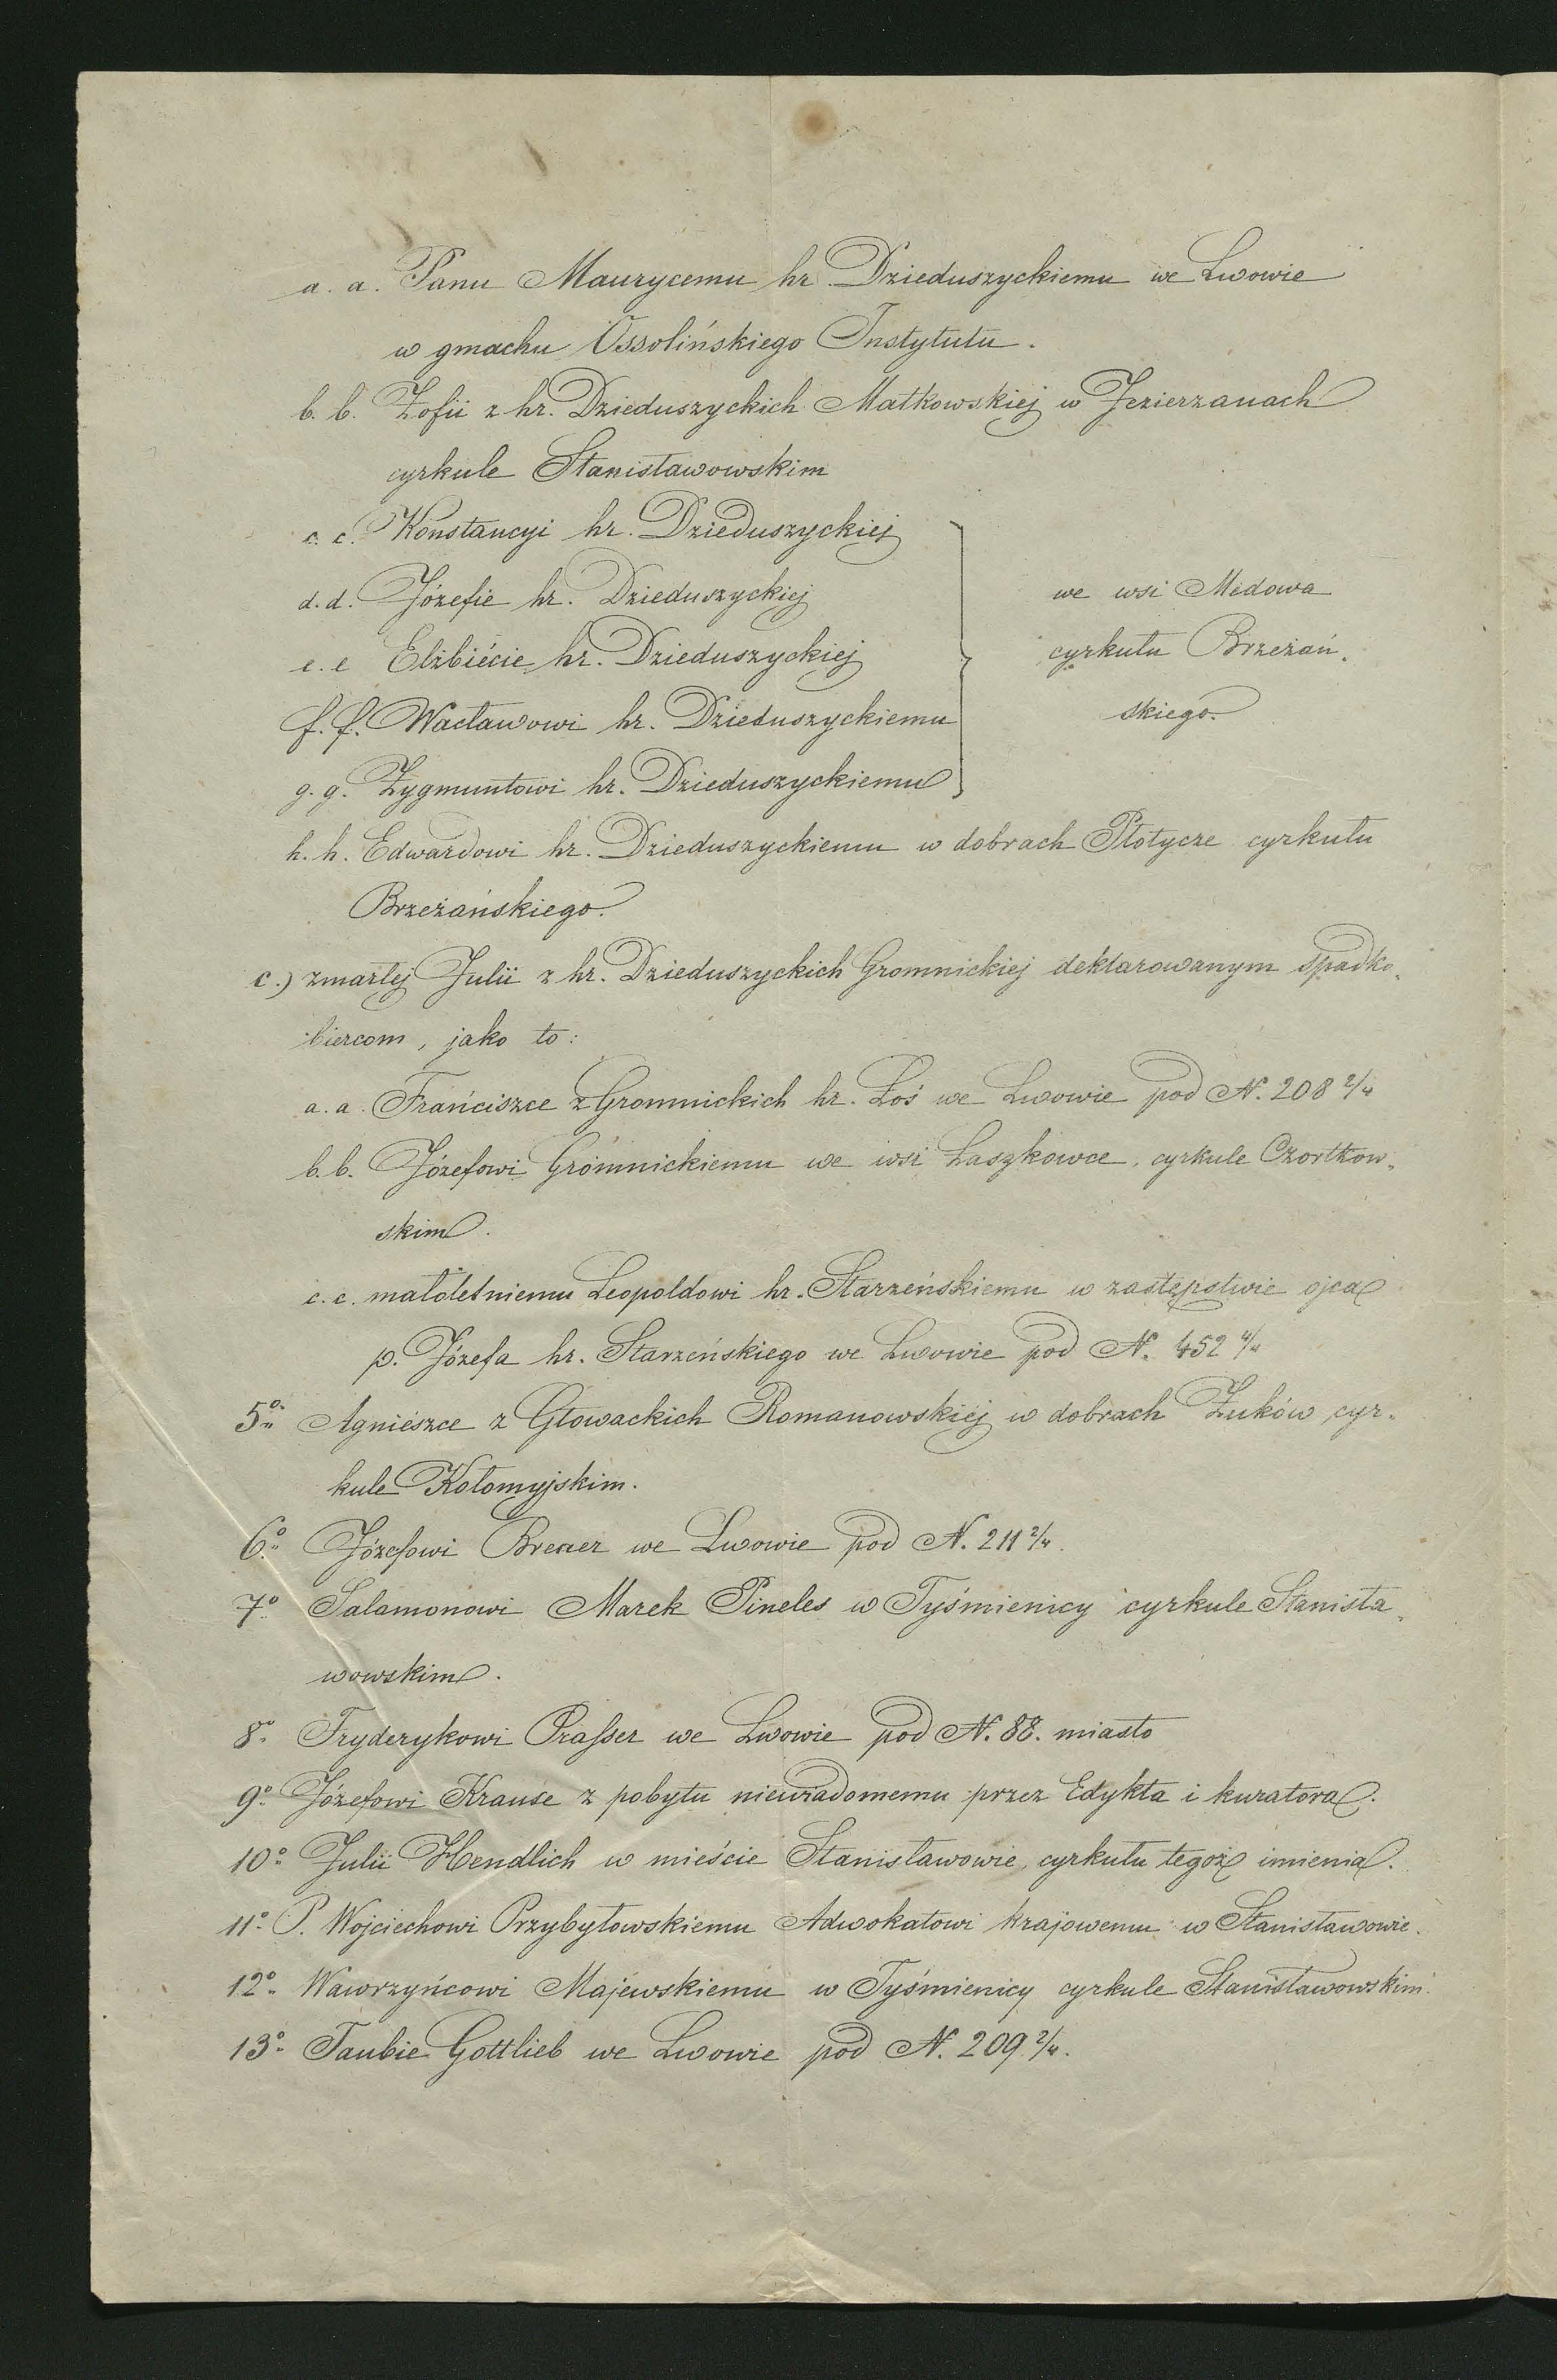 a. a. Panu Maurycemu hr. Dzieduszyckiemu we Lwowie
w gmachu Ossolińskiego Instytutu.
b. b. Zofii z hr. Dzieduszyckich Matkowskiej w Jezierzanach
cyrkule Stanisławowskim
c. c. Konstancyi hr. Dzieduszyckiej
d. d. Józefie hr. Dzieduszyckiej we wsi Medowa
e. e Elżbiécie hr. Dzieduszyckiej cyrkułu Brzeżań-
f. f. Wacławowi hr. Dzieduszyckiemu skiego.
g. g. Zygmuntowi hr. Dzieduszyckiemu
h. h. Edwardowi hr. Dzieduszyckiemu w dobrach Płotycze cyrkułu
Brzeżańskiego.
c.) zmarłej Julii z hr. Dzieduszyckich Gromnickiej deklarowanym spadko-
biercom, jako to:
a. a. Franciszce z Gromnickich hr. Łoś we Lwowie pod N. 208 2/4
b. b. Józefowi Gromnickiemu we wsi Laszkowce, cyrkule Czortkow-
skim.
c. c. małoletniemu Leopoldowi hr. Starzeńskiemu w zastępstwie ojca
p. Józefa hr. Starzeńskiego we Lwowie pod N. 452 4/4
5o Agniészce z Głowackich Romanowskiej w dobrach Żuków cyr-
kule Kołomyjskim.
6o Józefowi we Lwowie pod N. 211 2/4.
7o Salamonowi Marek Pineles w Tyśmienicy cyrkule Stanisła-
wowskim.
8o Fryderykowi Prasser we Lwowie pod N. 88. miasto
9o Józefowi Krause z pobytu niewiadomemu przez Edykta i kuratora.
10o Julii Hendlich w mieście Stanisławowie, cyrkułu tegoż imienia.
11o P. Wojciechowi Przybyłowskiemu Adwokatowi krajowemu w Stanisławowie.
12o Wawrzyńcowi Majewskiemu w Tyśmienicy cyrkule Stanisławowskim.
13o Taubie Gottlieb we Lwowie pod N. 209 2/4.